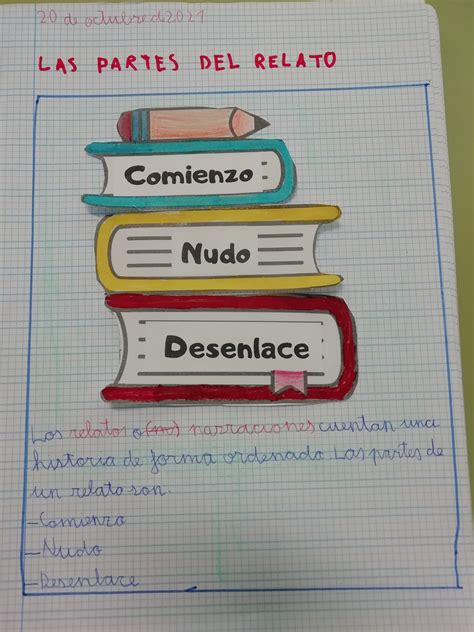 20 de octubre d 2021
LAS PARTES DEL RELATO
Comienzo
Nudo
Desenlace
Los relatos o (las) narraciones cuentan una
historia de forma ordenada. Las partes de
un relato son.
-Comienzo
-Nudo
-Desenlace